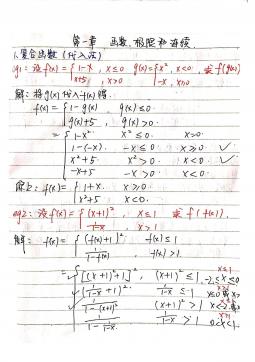 第一章 函数、极限和连续
1.复合函数(代入法)
eg1:设f(x)={1-x, x≤0 g(x)={x², x<0 求f(g(x))
x+5, x>0 -x, x≥0
解:将g(x)代入f(x)得
f(x)={1-g(x), g(x)≤0
g(x)+5, g(x)>0.
={1-x² x²≤0 x<0
1-(-x) -x≤0 x≥0 ✓
x²+5 x²>0 x<0 ✓
-x+5 -x>0 x≥0
f(x)={1+x. x≥0
x²+5 x<0.
eg2:设f(x)={(x+1)², x≤1 求f(f(x)).
1/(1-x) x>1
解: f(x)={(f(x)+1)² f(x)≤1
f(x)>1
={[(x+1)²+1]², (x+1)²≤1 -2≤x≤0
(1/(1-x)+1)² 1/(1-x)≤1
1/(1-(x+1)²) (x+1)²>1
1/(1-1/(1-x)) 1/(1-x)>1 0<x<1